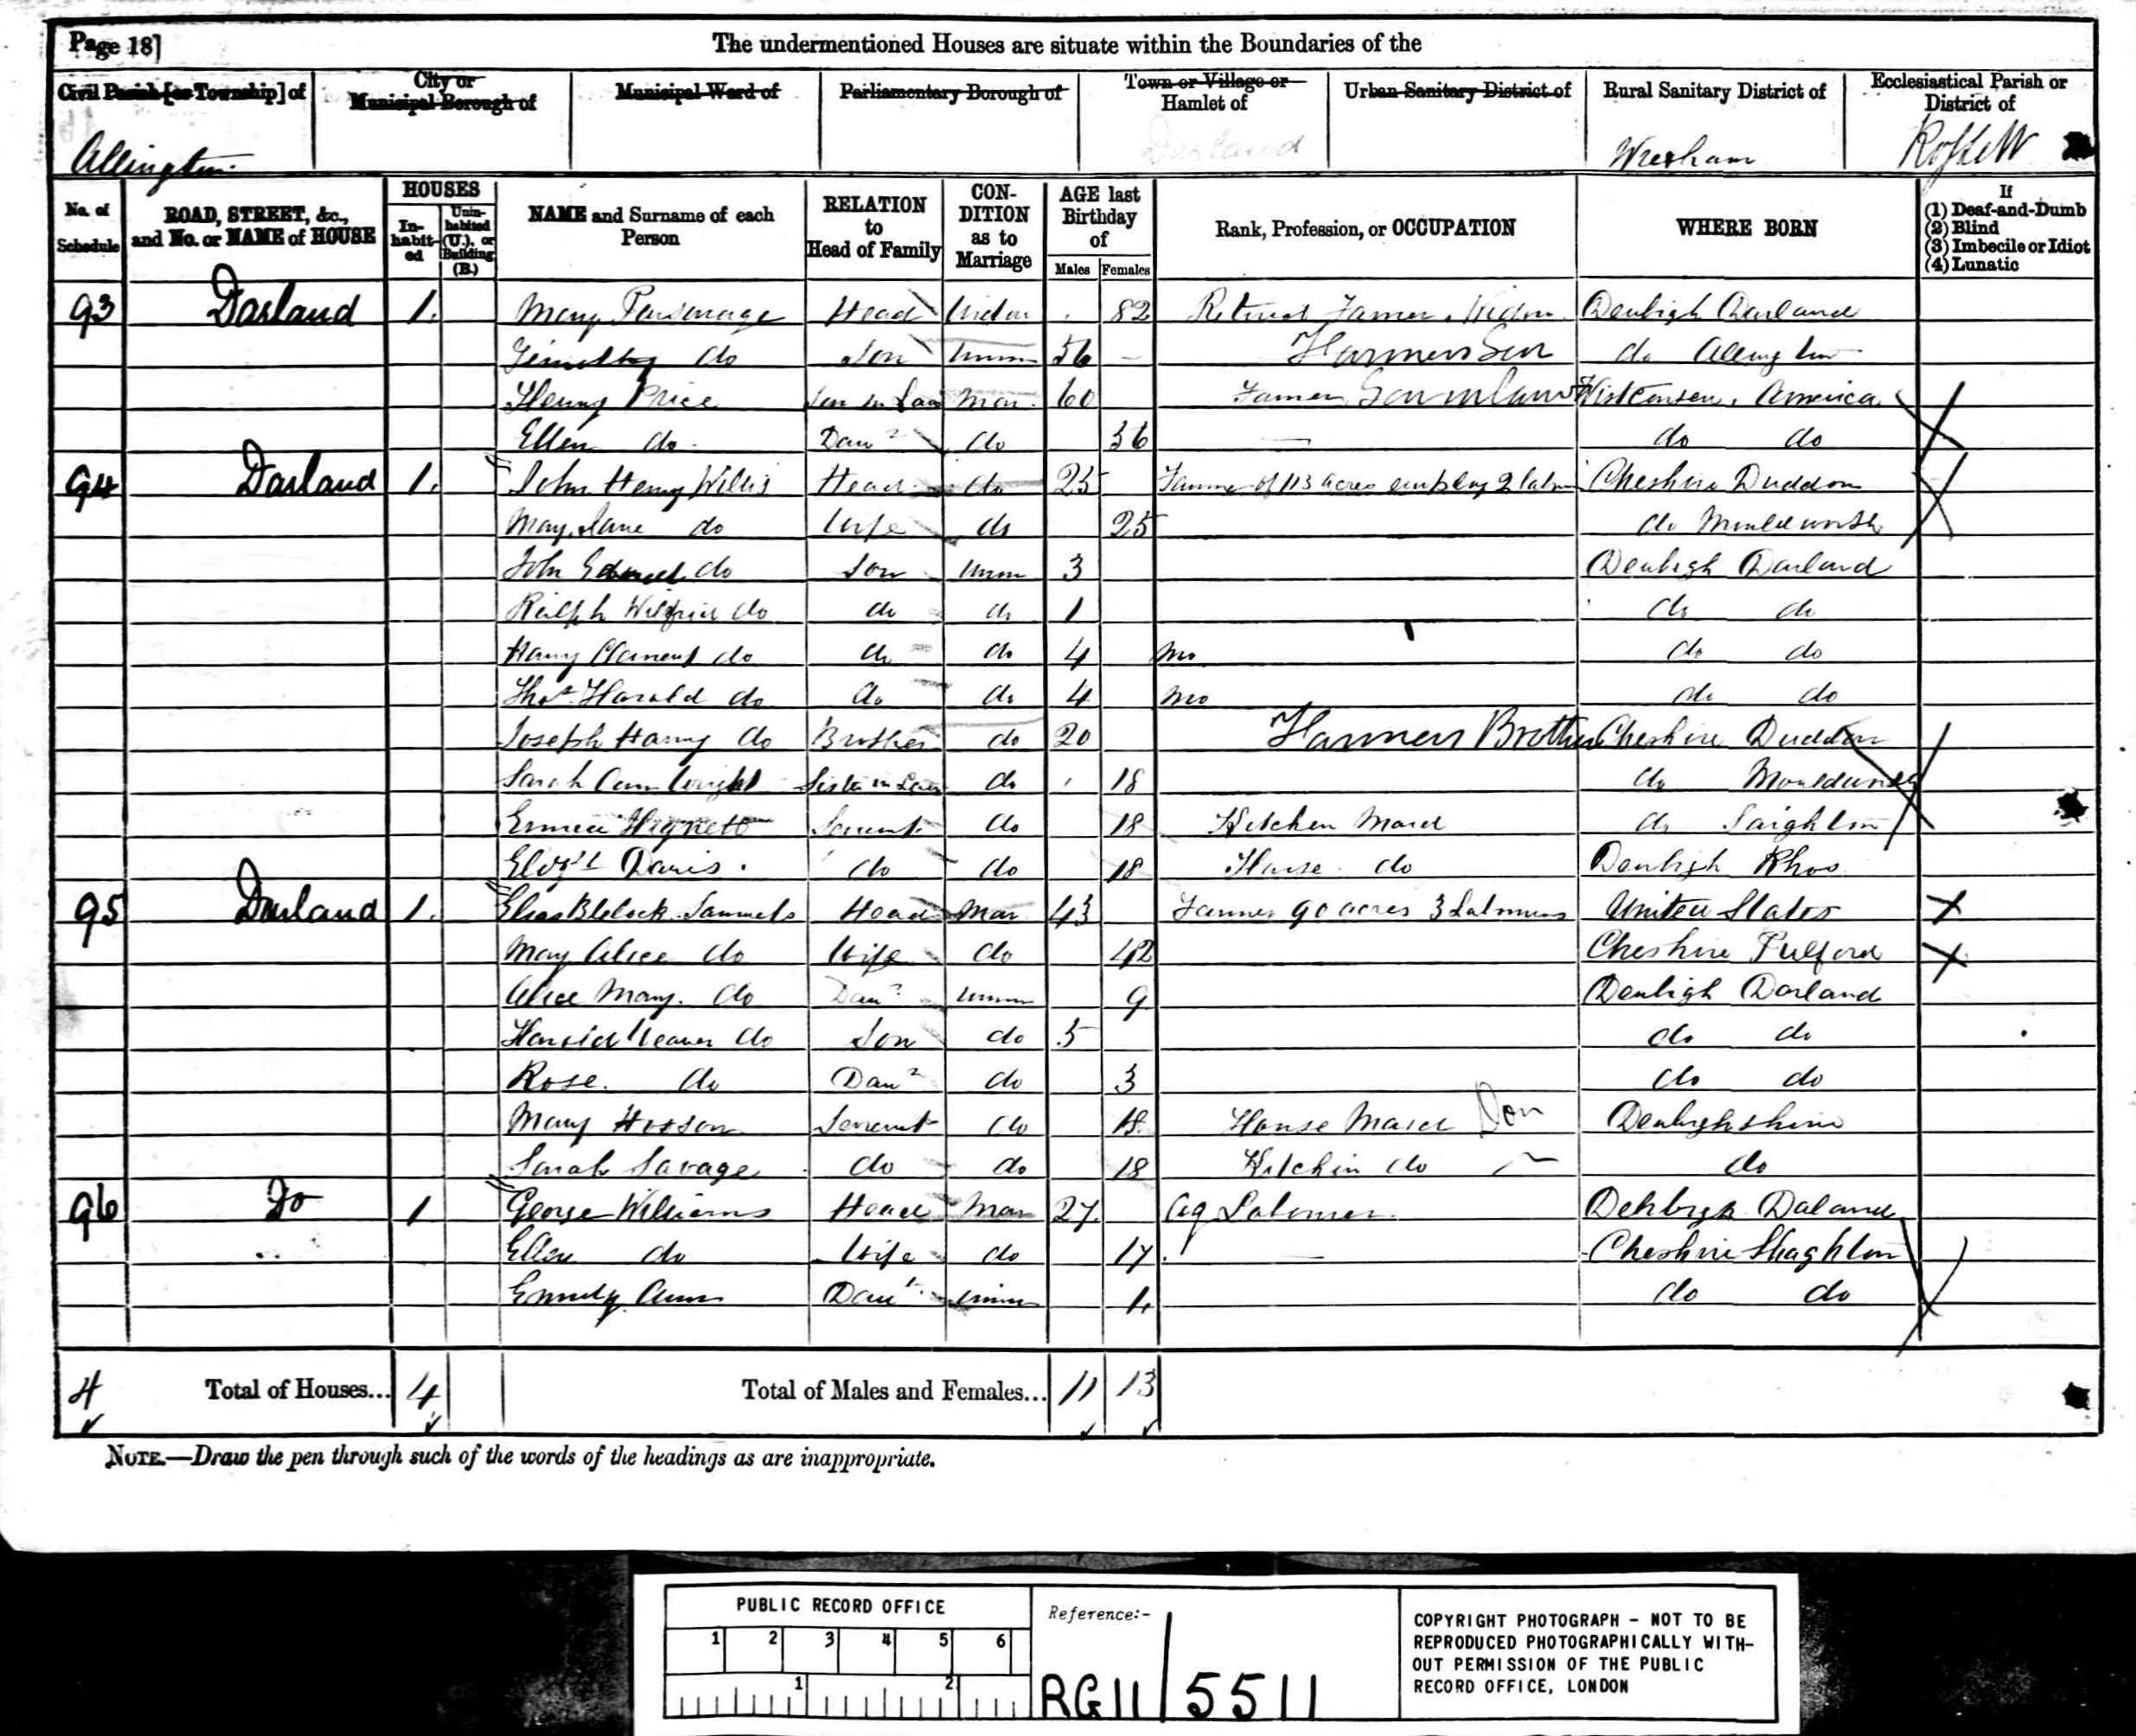 Page 18]
The undermentioned Houses are situate within the Boundaries of the
Civil Parish [or Township] of
City or Municipal Borough of
Municipal Ward of
Parliamentary Borough of
Town or Village or Hamlet of
Urban Sanitary District of
Rural Sanitary District of
Ecclesiastical Parish or District of
Allington Darland Wrexham Rossett
No. of Schedule
ROAD, STREET, &c., and No. or NAME of HOUSE
HOUSES
In-habit-ed
Unin-habited (U.), or Building (B.)
NAME and Surname of each Person
RELATION to Head of Family
CON-DITION as to Marriage
AGE last Birthday of
Males Females
Rank, Profession, or OCCUPATION
WHERE BORN
If
(1) Deaf-and-Dumb
(2) Blind
(3) Imbecile or Idiot
(4) Lunatic
93 Darland 1. Mary Parsonage Head Widow 82 Retired Farmer Widow Denbigh Darland
Timothy do Son Unm 56 Farmers Son do Allington
Henry Price Son in Law Mar. 60 Farmer Son in law Wisconsen, America
Ellen do Daur do 36 do do
94 Darland 1. John Henry Willis Head do 25 Farmer of 113 acres employ 2 labrs Cheshire Duddon
Mary Jane do Wife do 25 do Mouldworth
John do Son Unm 3 Denbigh Darland
Ralph Wilfrid do do do 1 do do
Harry Clement do do do 4 mo do do
Thos Harold do do do 4 mo do do
Joseph Harry do Brother do 20 Farmers Brother Cheshire Duddon
Sarah Ann Wright Sister in Law do 18 do Mouldworth
Emma Hignett Servant do 18 Kitchen Maid do Saighton
Elizth Davis do do 18 House do Denbigh Rhos
95 Darland 1. Elias Blelock Samuels Head Mar 43 Farmer 90 acres 3 Labourers United States
Mary Alice do Wife do 42 Cheshire Pulford
Alice Mary do Daur Unm 9 Denbigh Darland
Harold Weaver do Son do 5 do do
Rose do Daur do 3 do do
Mary Hosson Servant do 18 House Maid Dom Denbighshire
Sarah Savage do do 18 Kitchin do do
96 Do 1 George Williams Head Mar 27 Ag Labourer Denbigh Daland
Ellen do Wife do 17 Cheshire Shaghton
Emily Ann Daur Unm 1. do do
4 Total of Houses... 4 Total of Males and Females... 11 13
NOTE.—Draw the pen through such of the words of the headings as are inappropriate.
PUBLIC RECORD OFFICE
1 2 3 4 5 6
1 2
Reference:-
RG11 / 5511
COPYRIGHT PHOTOGRAPH - NOT TO BE
REPRODUCED PHOTOGRAPHICALLY WITH-
OUT PERMISSION OF THE PUBLIC
RECORD OFFICE, LONDON